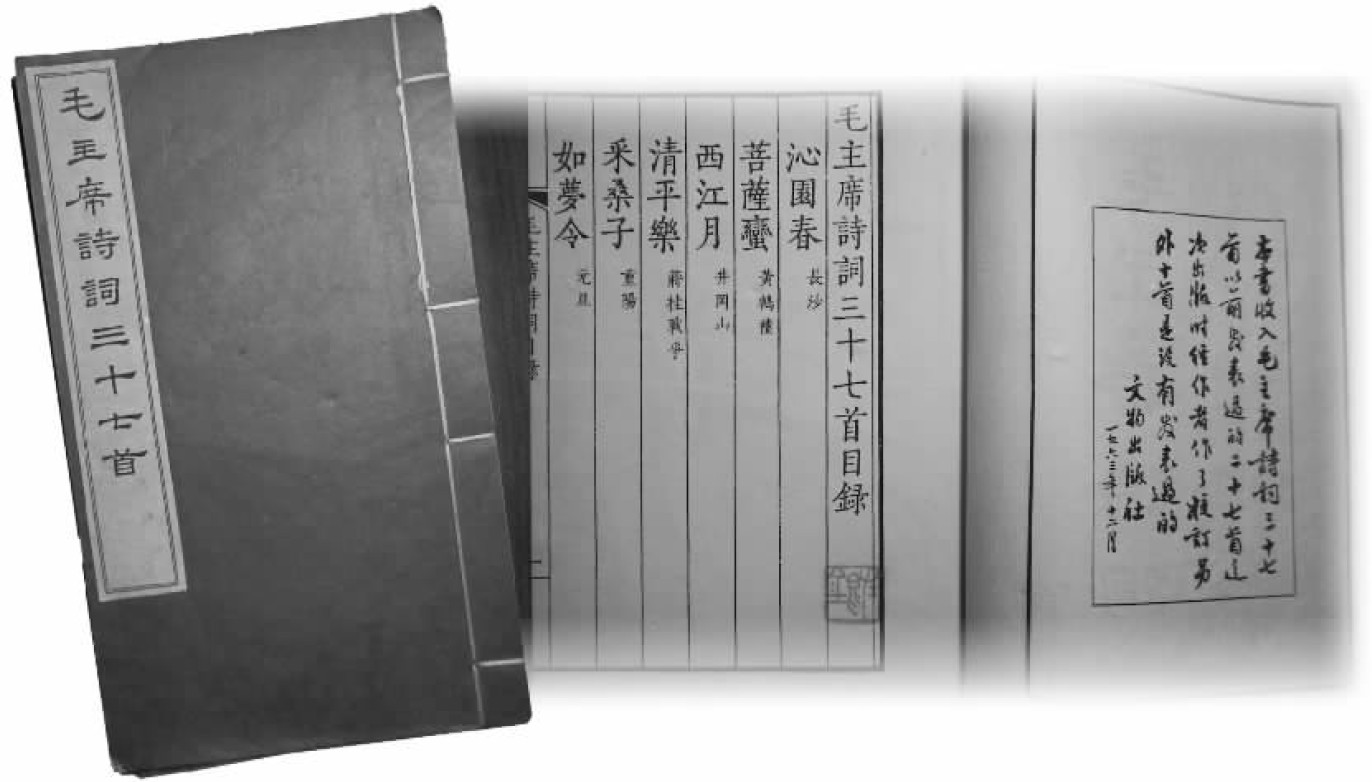 毛主席詩詞三十七首
毛主席詩詞三十七首目録
沁園春 長沙
菩薩蠻 黃鶴樓
西江月 井岡山
清平樂 蔣桂戰爭
采桑子 重陽
如夢令 元旦
毛主席詩詞目錄
本書收入毛主席詩詞三十七
首以前发表過的二十七首這
次出版时經作者作了校訂另
外十首是没有发表過的
文物出版社
一九六三年十二月